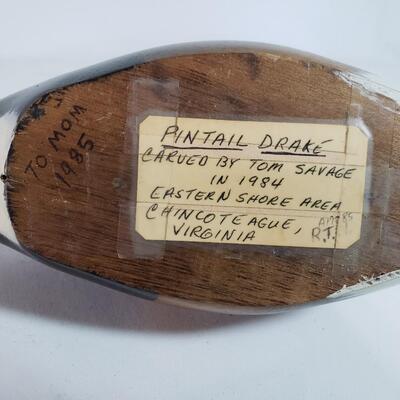 TO MOM
1985
PINTAIL DRAKE
CARVED BY TOM SAVAGE
IN 1984
EASTERN SHORE AREA
CHINCOTEAGUE,
VIRGINIA
R.T.